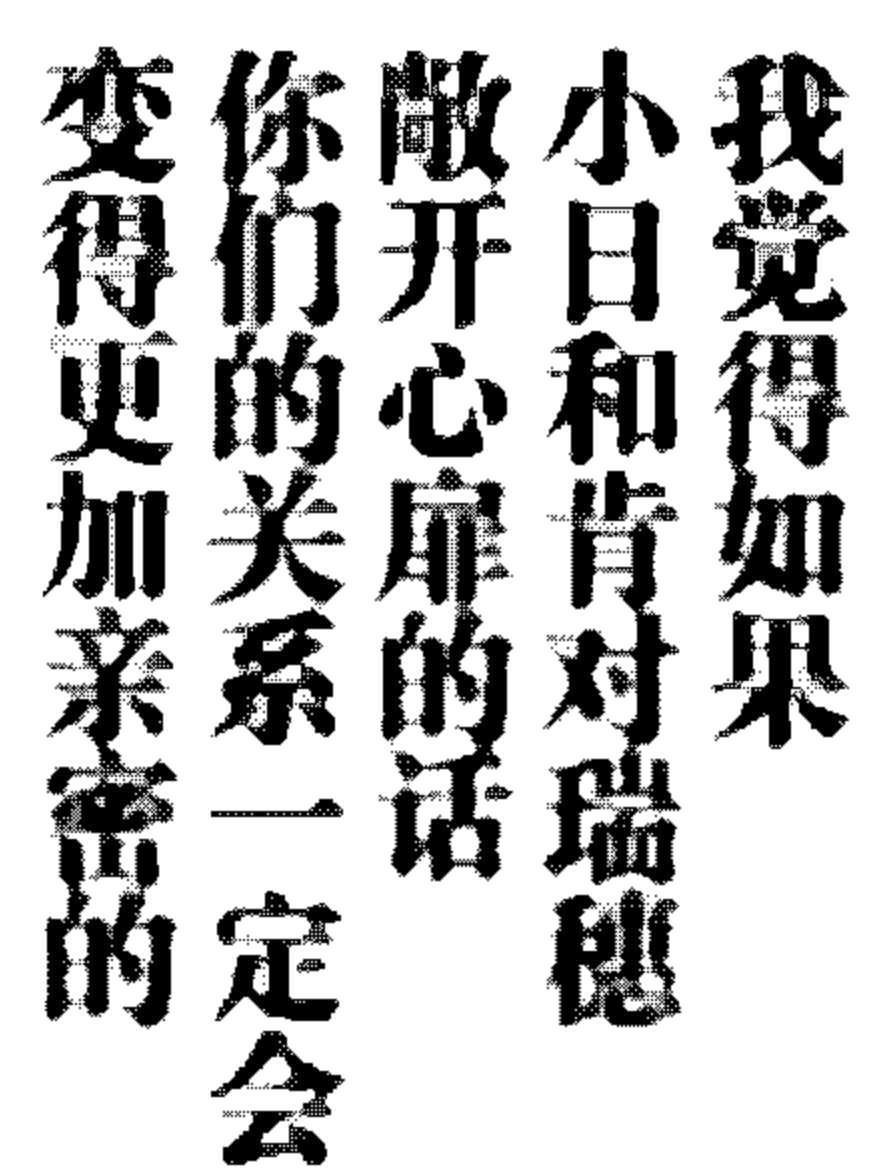 我觉得如果
小日和肯对瑞穏
敞开心扉的话
你们的关系一定会
变得更加亲密的